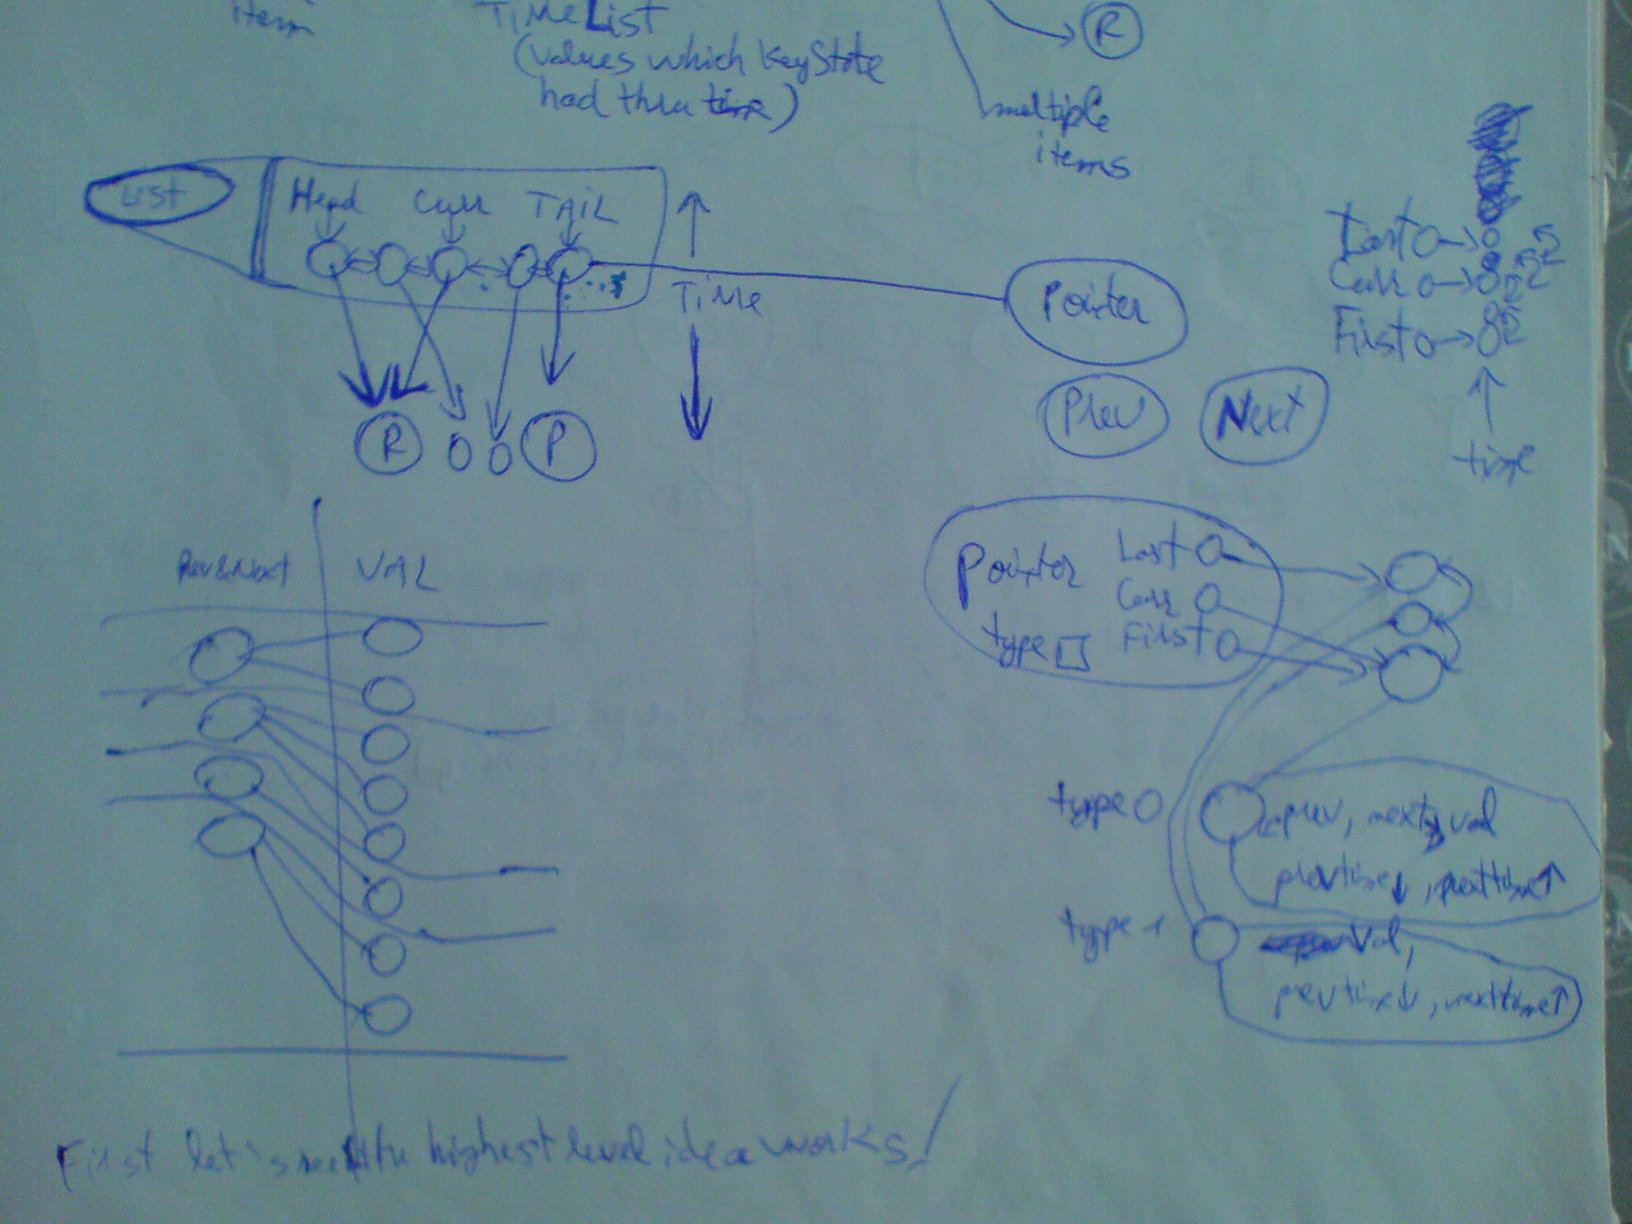 item
TiMeList
(values which KeyState
had thru time)
R
multiple
items
List
Head Curr TAiL
TiMe
R
P
Pointer
Prev
Next
Last
Curr
First
time
Prev&Next VAL
Pointer
type
Last
Curr
First
type 0
prev, next, val
prevtime↓, nexttime↑
type 1
val,
prevtime↓, nexttime↑
First let's see if the highest level idea works!